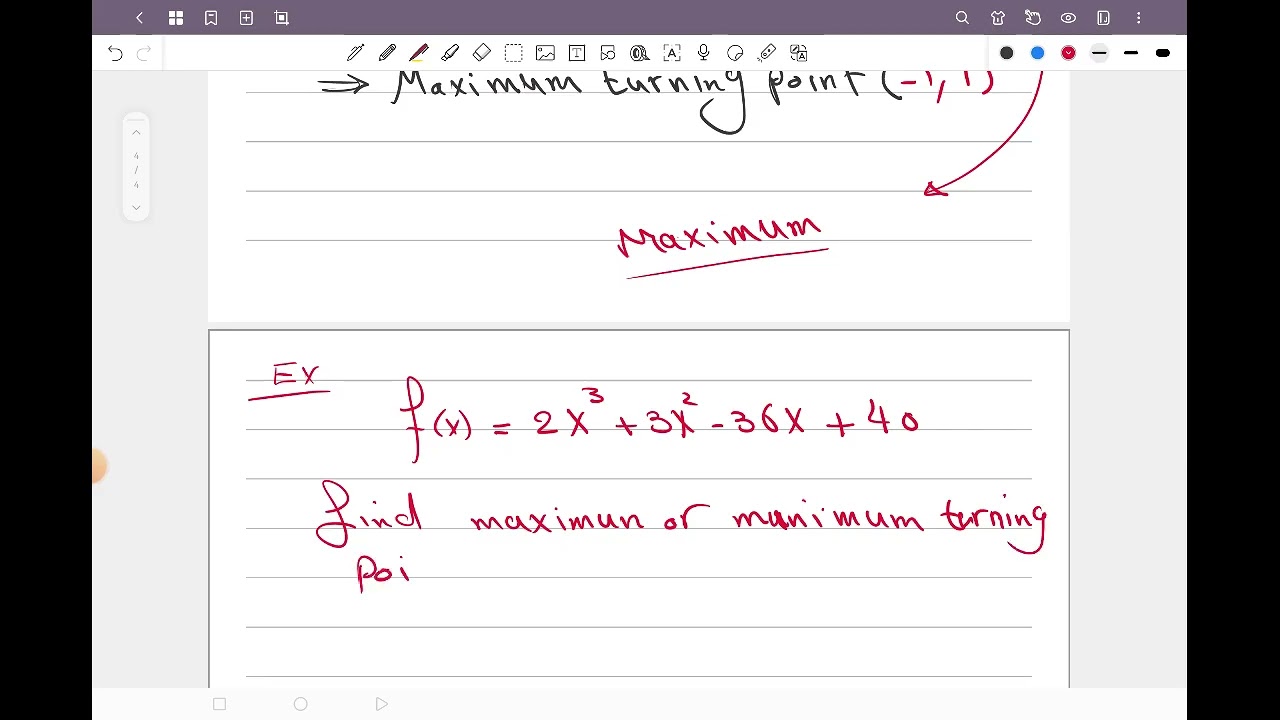 ⇒ Maximum turning point (-1, 1)
4
/
4
Maximum
Ex
f(x) = 2x³ + 3x² - 36x + 40
find maximun or munimum turning
poi